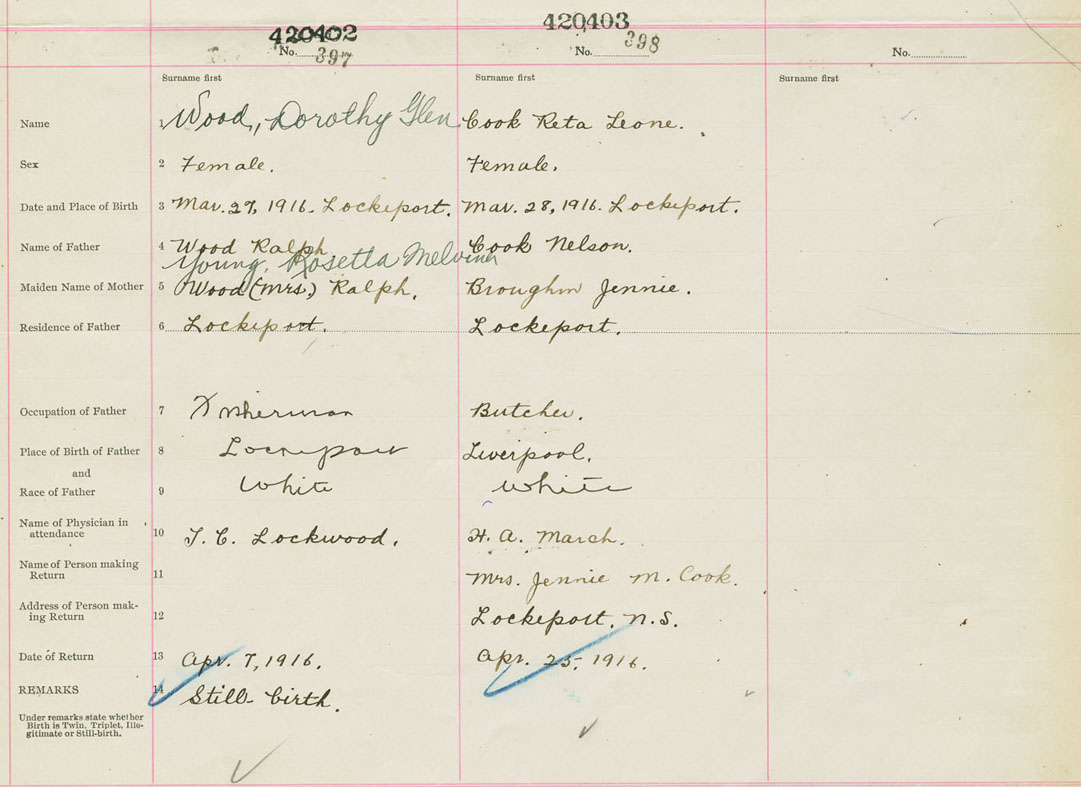 420402 420403
No. 397 No. 398 No.
Surname first Surname first Surname first
Name 1 Wood, Dorothy Glen Cook Reta Leone.
Sex 2 Female. Female.
Date and Place of Birth 3 Mar. 27, 1916. Lockeport. Mar. 28, 1916. Lockeport.
Name of Father 4 Wood Ralph Cook Nelson.
Young, Rosetta Melvina
Maiden Name of Mother 5 Wood (Mrs.) Ralph. Broughm Jennie.
Residence of Father 6 Lockeport. Lockeport.
Occupation of Father 7 Fisherman Butcher.
Place of Birth of Father 8 Lockeport Liverpool.
and
Race of Father 9 White White
Name of Physician in
attendance 10 T. C. Lockwood. H. A. March.
Name of Person making
Return 11 Mrs. Jennie M. Cook.
Address of Person mak-
ing Return 12 Lockeport, N.S.
Date of Return 13 Apr. 7, 1916. Apr. 25, 1916.
REMARKS 14 Still birth.
Under remarks state whether
Birth is Twin, Triplet, Ille-
gitimate or Still-birth.